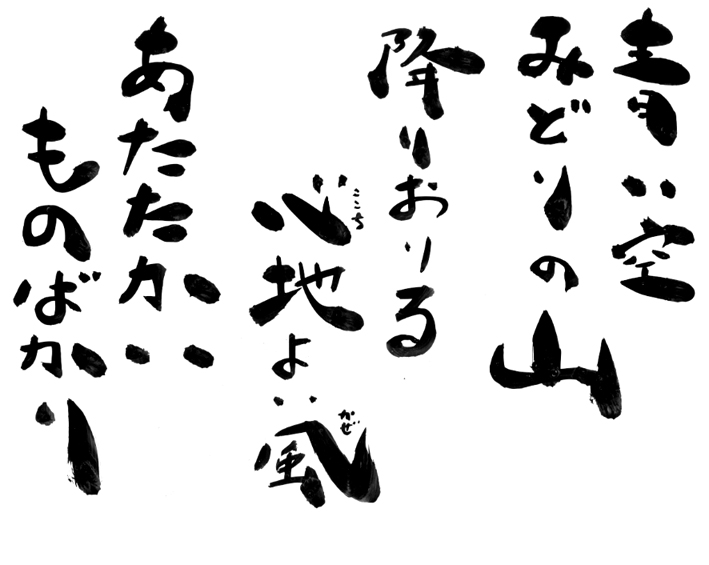 青い空
みどりの山
降りおりる
心地よい風
ここち
かぜ
あたたかい
ものばかり